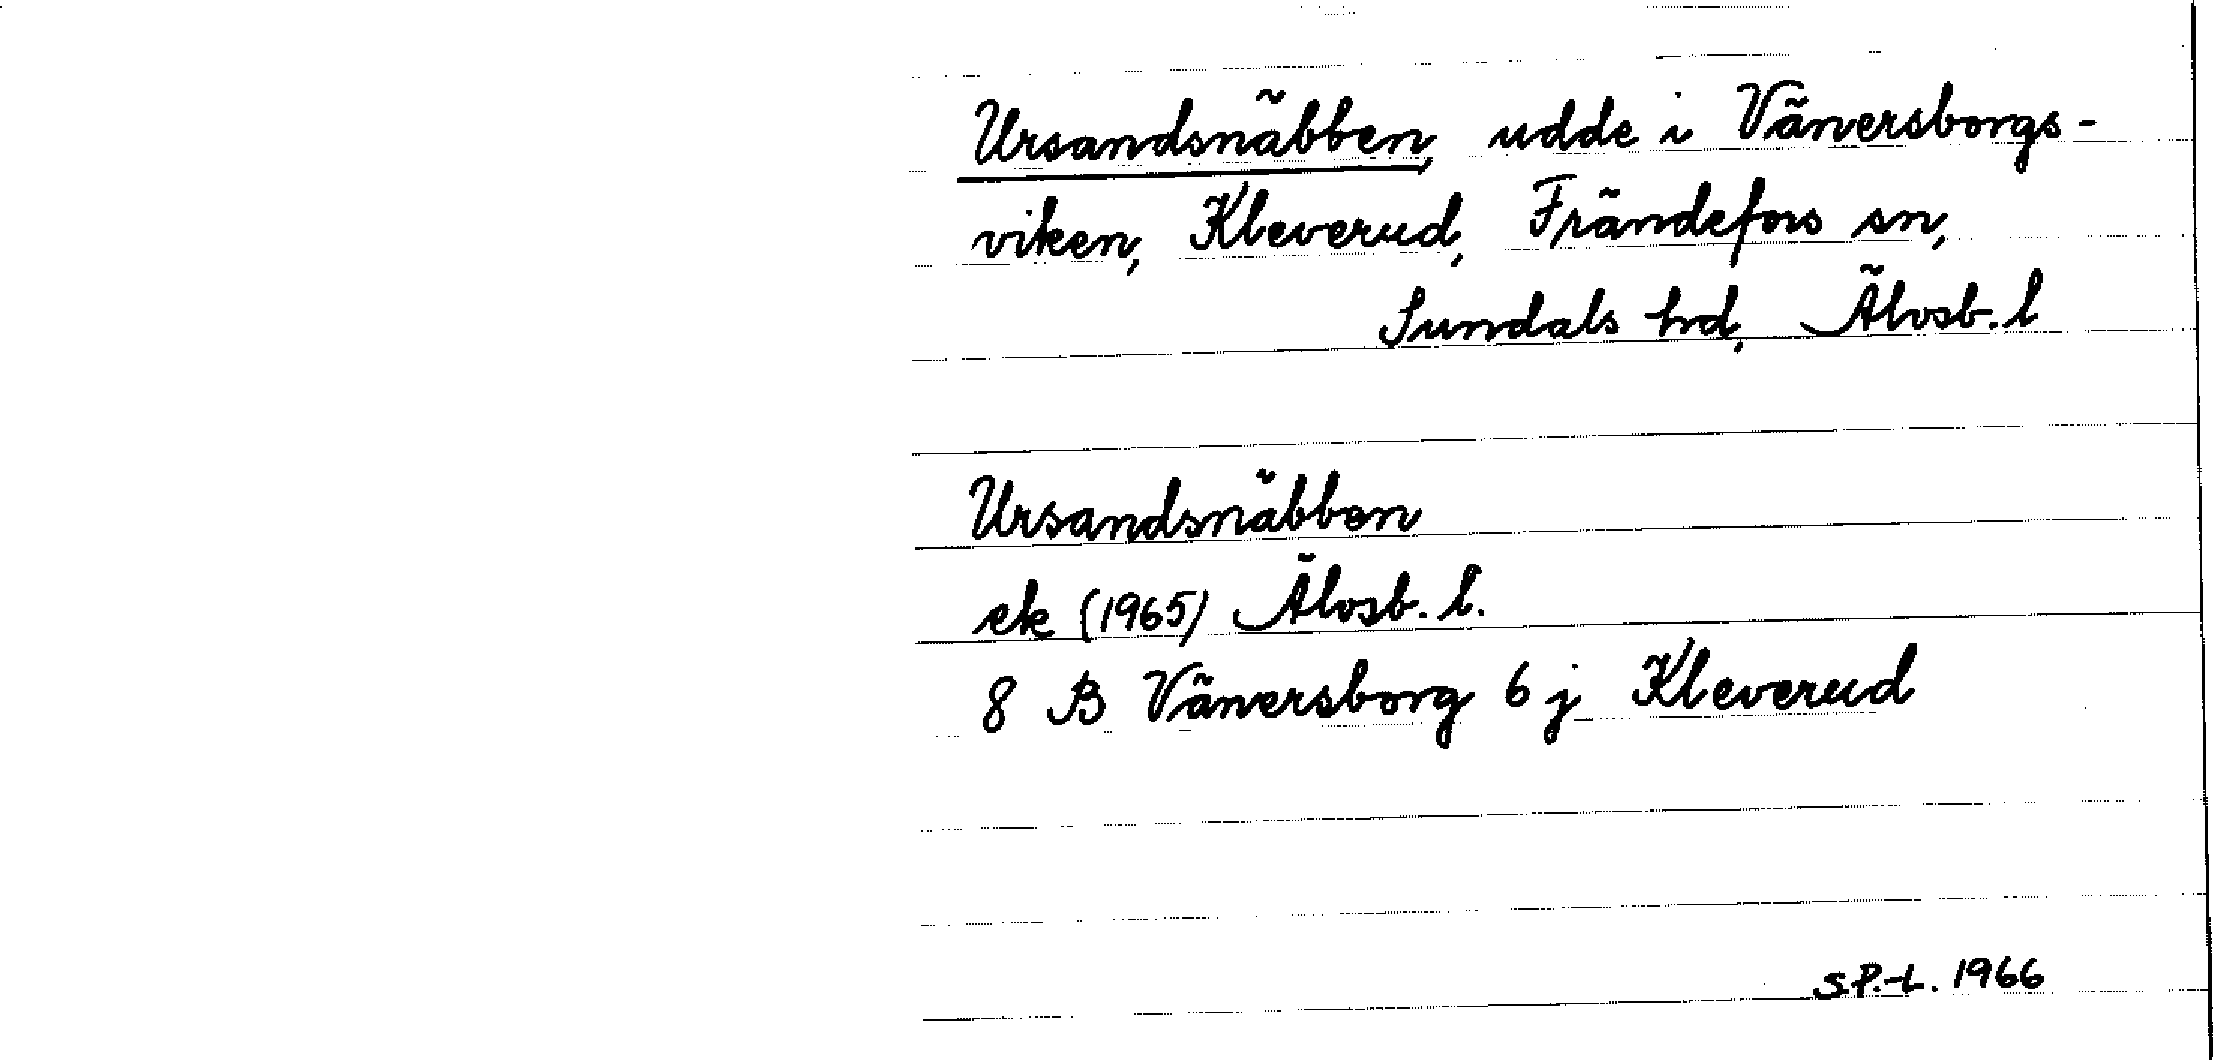 Ursandsnäbben, udde i Vänersborgs-
viken, Kleverud, Frändefors sn,
Sundals hd, Älvsb. l
Ursandsnäbben
ek (1965) Älvsb. l.
8 B Vänersborg 6 j Kleverud
S.P.-L. 1966